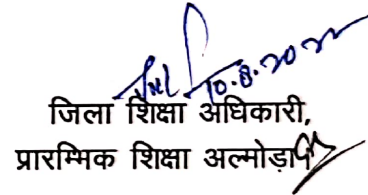 10.8.2022
जिला शिक्षा अधिकारी,
प्रारम्भिक शिक्षा अल्मोड़ा